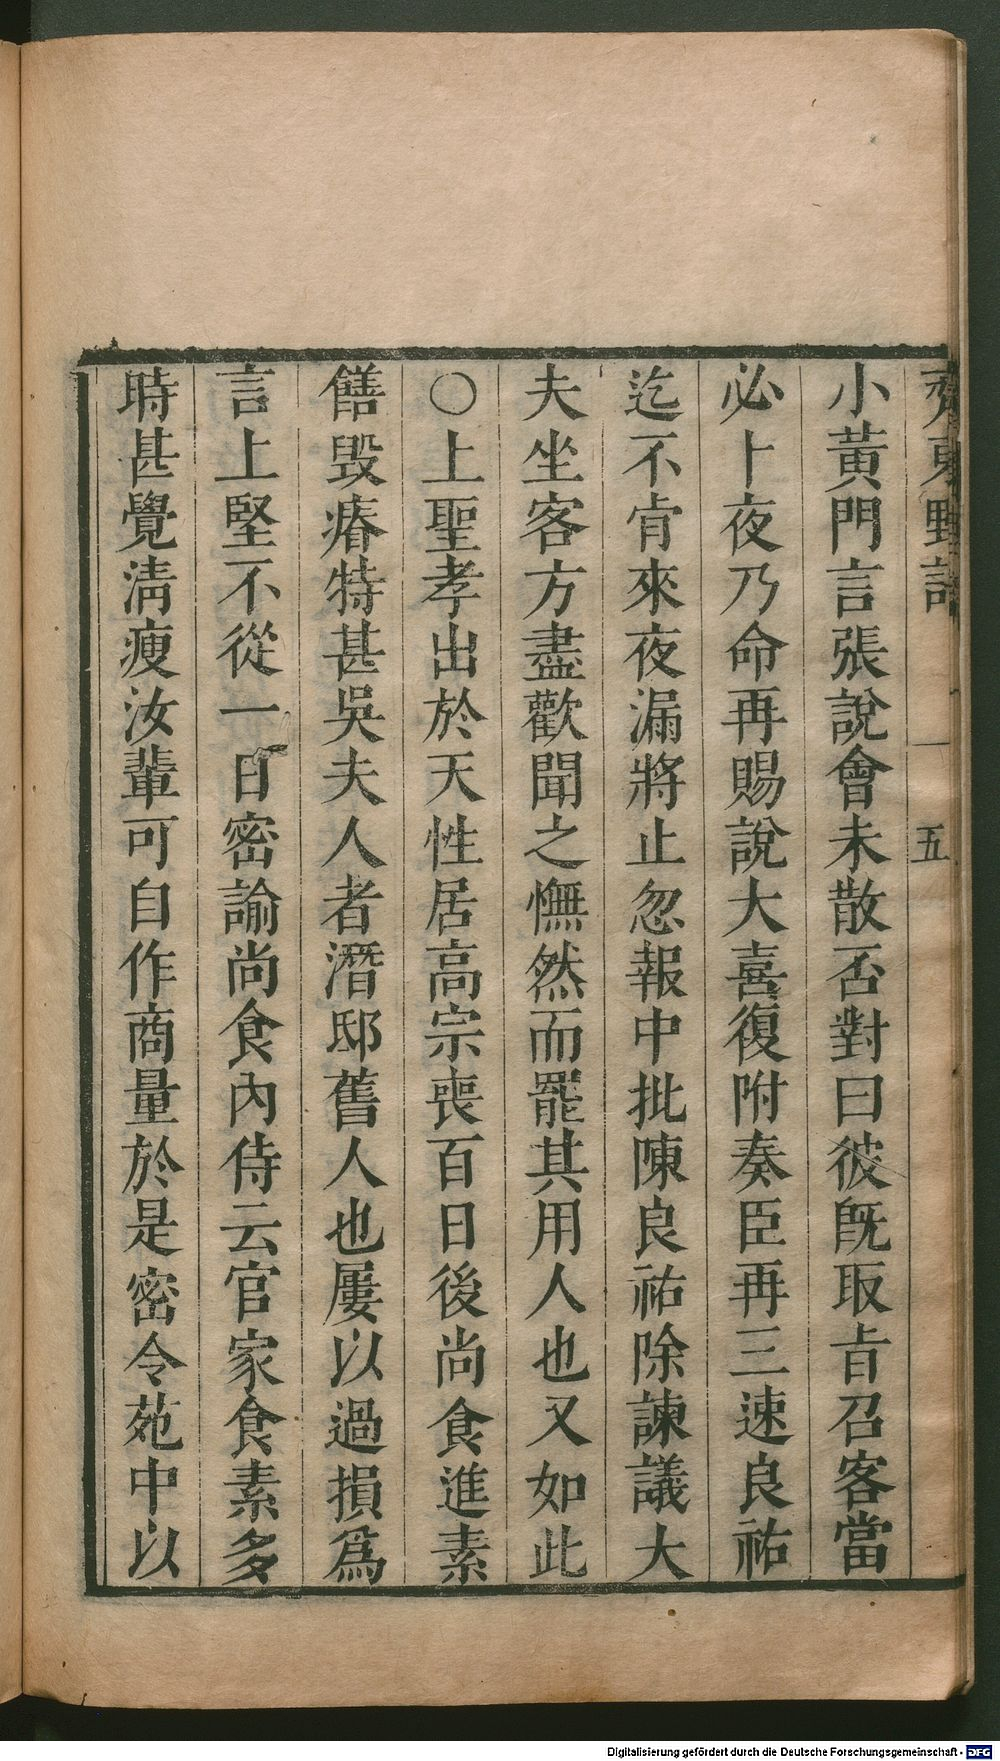 齊東野語 一 五
小黃門言張說會未散否對曰彼旣取㫖召客當
必卜夜乃命再賜說大喜復附奏臣再三速良祐
迄不肯來夜漏將止忽報中批陳良祐除諫議大
夫坐客方盡歡聞之憮然而罷其用人也又如此
○上聖孝出於天性居高宗喪百日後尚食進素
饍毀瘠特甚吳夫人者潛邸舊人也屢以過損爲
言上堅不從一日密諭尚食內侍云官家食素多
時甚覺淸瘦汝輩可自作商量於是密令苑中以
Digitalisierung gefördert durch die Deutsche Forschungsgemeinschaft - DFG